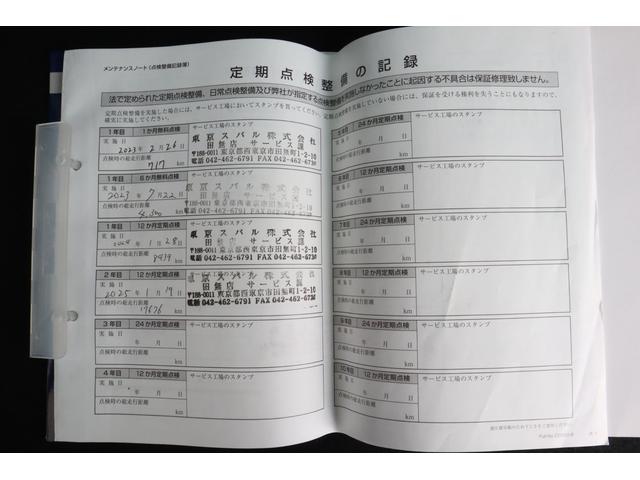 メンテナンスノート(点検整備記録簿)
定期点検整備の記録
法で定められた定期点検整備、日常点検整備及び弊社が指定する点検整備を実施しなかったことに起因する不具合は保証修理致しません。
定期点検を実施した場合には、サービス工場においてスタンプを貰ってください。
確実に実施してください。
を実施していない場合には、保証を受ける権利を失うこともなりますので、
1年目 1か月無料点検 サービス工場のスタンプ
実施日
2023年2月26日
点検時の総走行距離
717 km
東京スバル株式会社
田無店 サービス課
〒188-0011 東京都西東京市田無町1-2-10
電話 042-462-6791 FAX 042-462-6736
1年目 6か月無料点検 サービス工場のスタンプ
実施日
2023年7月22日
点検時の総走行距離
km
東京スバル株式会社
田無店 サービス課
〒188-0011 東京都西東京市田無町1-2-10
電話 042-462-6791 FAX 042-462-6736
1年目 12か月定期点検 サービス工場のスタンプ
実施日
2024年1月28日
点検時の総走行距離
8939 km
東京スバル株式会社
田無店 サービス課
〒188-0011 東京都西東京市田無町1-2-10
電話 042-462-6791 FAX 042-462-6736
2年目 12か月定期点検 サービス工場のスタンプ
実施日
2025年1月19日
点検時の総走行距離
17676 km
東京スバル株式会社
田無店 サービス課
〒188-0011 東京都西東京市田無町1-2-10
電話 042-462-6791 FAX 042-462-6736
3年目 24か月定期点検 サービス工場のスタンプ
実施日
年 月 日
点検時の総走行距離
km
4年目 12か月定期点検 サービス工場のスタンプ
実施日
年 月 日
点検時の総走行距離
km
24か月定期点検 サービス工場のスタンプ
実施日
年 月 日
点検時の総走行距離
km
12か月定期点検 サービス工場のスタンプ
実施日
年 月 日
点検時の総走行距離
km
7年目 24か月定期点検 サービス工場のスタンプ
実施日
年 月 日
点検時の総走行距離
km
12か月定期点検 サービス工場のスタンプ
実施日
年 月 日
点検時の総走行距離
km
9年目 24か月定期点検 サービス工場のスタンプ
実施日
年 月 日
点検時の総走行距離
km
10年目 12か月定期点検 サービス工場のスタンプ
実施日
年 月 日
点検時の総走行距離
km